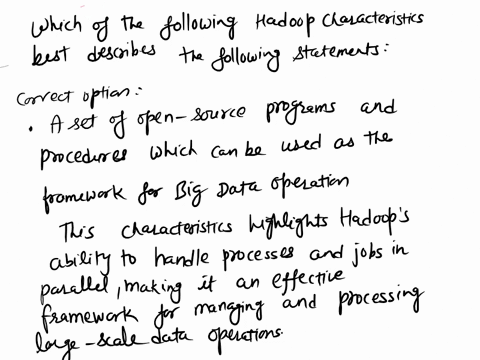 Which of the following Hadoop Characteristics
best describes the following statements:
Correct option:
• A set of open-source programs and
procedures which can be used as the
framework for Big Data operation
This characteristics highlights Hadoop's
ability to handle processes and jobs in
parallel, making it an effective
framework for managing and processing
large-scale data operations.